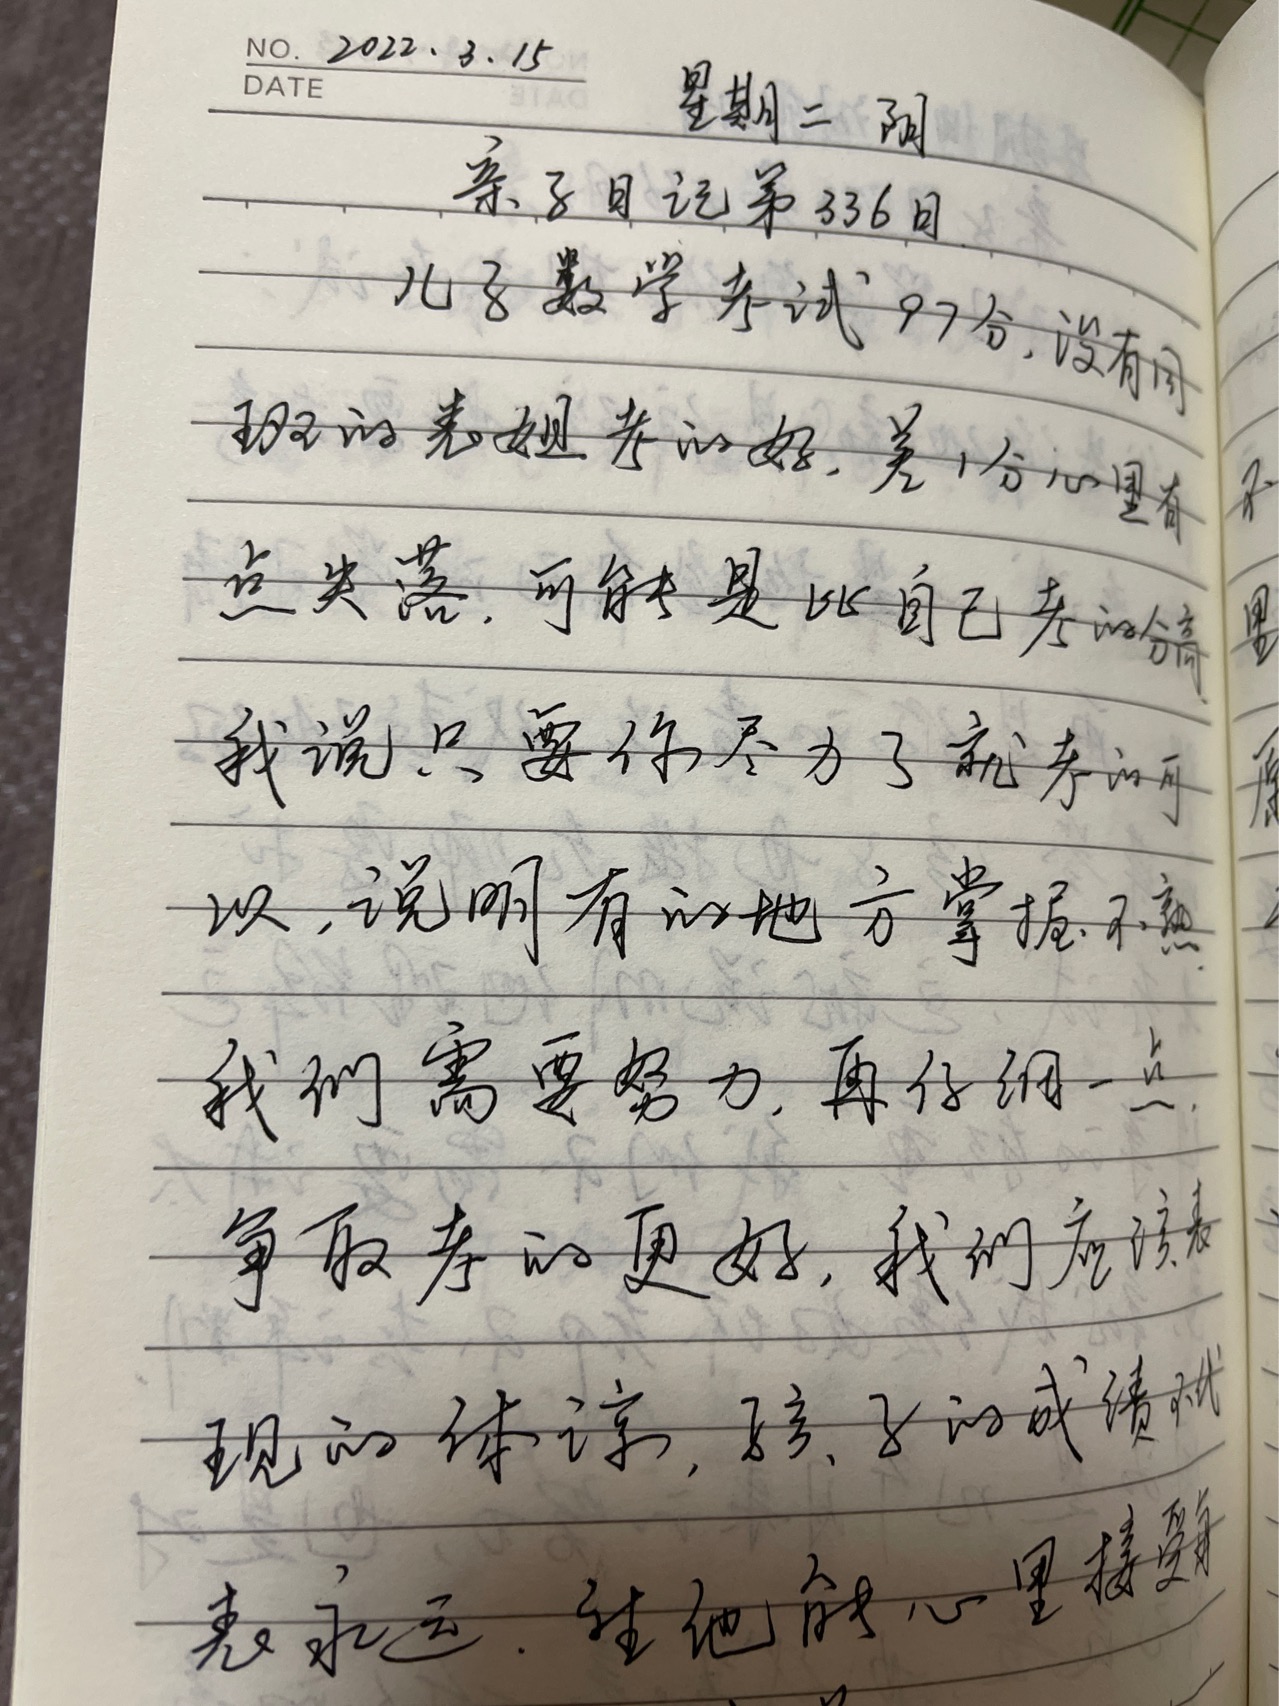 NO. 2022.3.15
DATE
星期二 阴
亲子日记第336日
儿子数学考试97分,没有同
班的表姐考的好,差1分心里有
点失落,可能是比自己考的分高
我说只要你尽力了就考的可
以,说明有的地方掌握不熟.
我们需要努力,再仔细一点,
争取考的更好,我们应该表
现的体谅,孩子的成绩不代
表永远.让他能心里接受